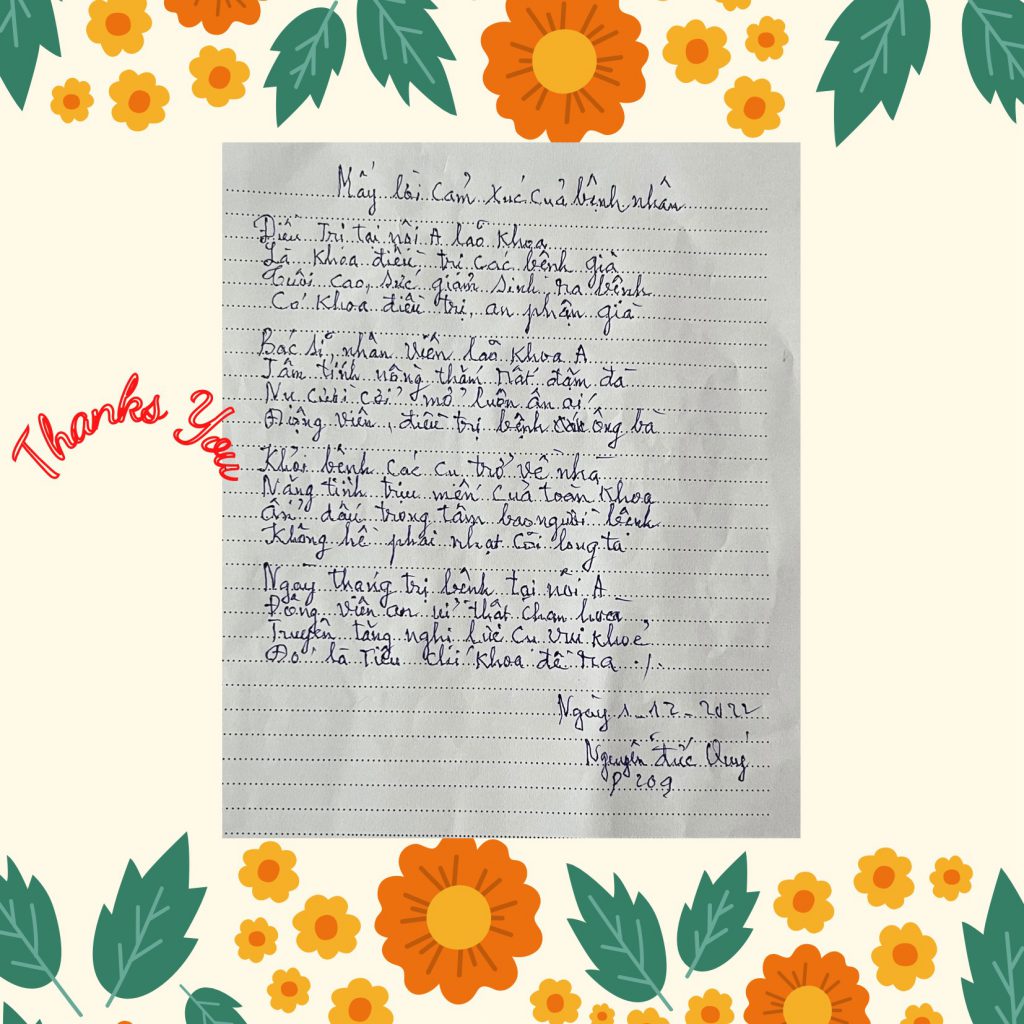 Mấy lời cảm xúc của bệnh nhân
Điều Trị tại nội A lão khoa
Là khoa điều trị các bệnh già
Tuổi cao, sức giảm sinh ra bệnh
Có khoa điều trị, an phận già
Bác sĩ, nhân viên lão khoa A
Tâm tính nồng thắm rất đậm đà
Nụ cười cởi mở luôn ân ái
Động viên, điều trị bệnh các ông bà
Khỏi bệnh các cụ trở về nhà
Nặng tình trịu mến của toàn khoa
Ẩn dấu trong tâm bao người bệnh
Không hề phai nhạt cõi lòng ta
Ngày tháng trị bệnh tại nội A
Động viên an ủi thật chan hoà
Truyền tăng nghị lực cụ vui khoẻ
Đó là Tiêu chí khoa đề ra ./.
Ngày 1-12-2022
Nguyễn Đức Quý
P 209
Thanks You